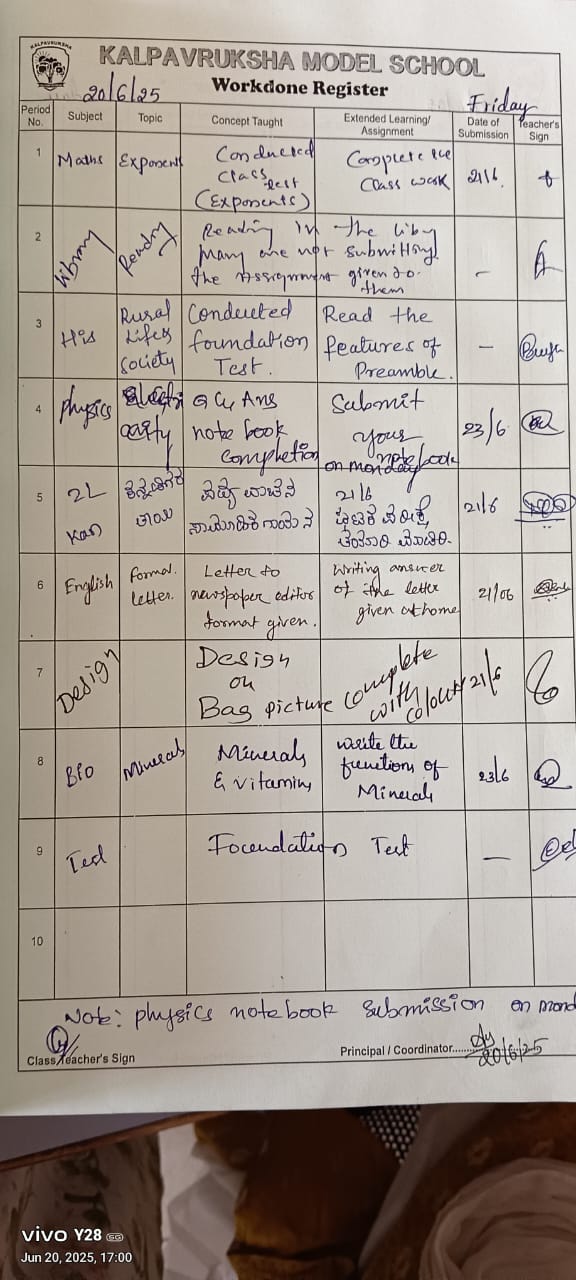 KALPAVRUKSHA
KALPAVRUKSHA MODEL SCHOOL
20/6/25 Workdone Register Friday
Period No. Subject Topic Concept Taught Extended Learning/ Assignment Date of Submission Teacher's Sign
1 Maths Exponents Conducted Class test (Exponents) Complete the Class work 21/6.
2 Library Reading Reading in the
Many are not submitting
the Assignment given to
them –
3 His Rural Life & Society Conducted foundation Test. Read the features of Preamble. –
4 Physics Q & Ans note book completion Submit your note book on monday 23/6
5 2L Kan 21/6 21/6
6 English formal letter. Letter to newspaper editor format given. Writing answer of the letter given at home 21/06
7 Design Design on Bag picture complete with colour 21/6
8 Bio Minerals Minerals & vitamins write the functions of Minerals 23/6
9 Foundation Test —
10
Note: physics notebook submission on mond
Class Teacher's Sign
Principal / Coordinator........
20/6/25
vivo Y28 5G
Jun 20, 2025, 17:00